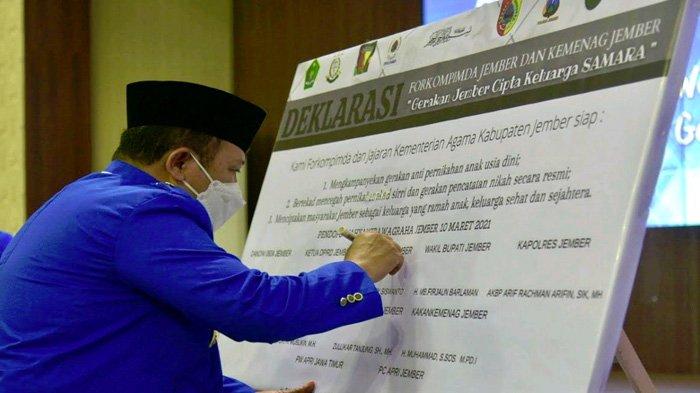 DEKLARASI
FORKOPIMDA JEMBER DAN KEMENAG JEMBER
"Gerakan Jember Cipta Keluarga SAMARA"
Kami Forkopimda dan Jajaran Kementerian Agama Kabupaten Jember siap :
1. Mengkampanyekan gerakan anti pernikahan anak usia dini;
2. Bertekad mencegah pernikahan sirri dan gerakan pencatatan nikah secara resmi;
3. Menciptakan masyarakat Jember sebagai keluarga yang ramah anak, keluarga sehat dan sejahtera.
JEMBER 10 MARET 2021
JEMBER KETUA DPRD JEMBER WAKIL BUPATI JEMBER KAPOLRES JEMBER
SISWANTO H. MB.FIRJAUN BARLAMAN AKBP ARIF RACHMAN ARIFIN, SIK, MH
JEMBER KAKANKEMENAG JEMBER
MUSLIKH, M.H ZULLIKAR TANJUNG, SH., MH. H. MUHAMMAD, S.SOS M.PD.I
PW APRI JAWA TIMUR PC APRI JEMBER